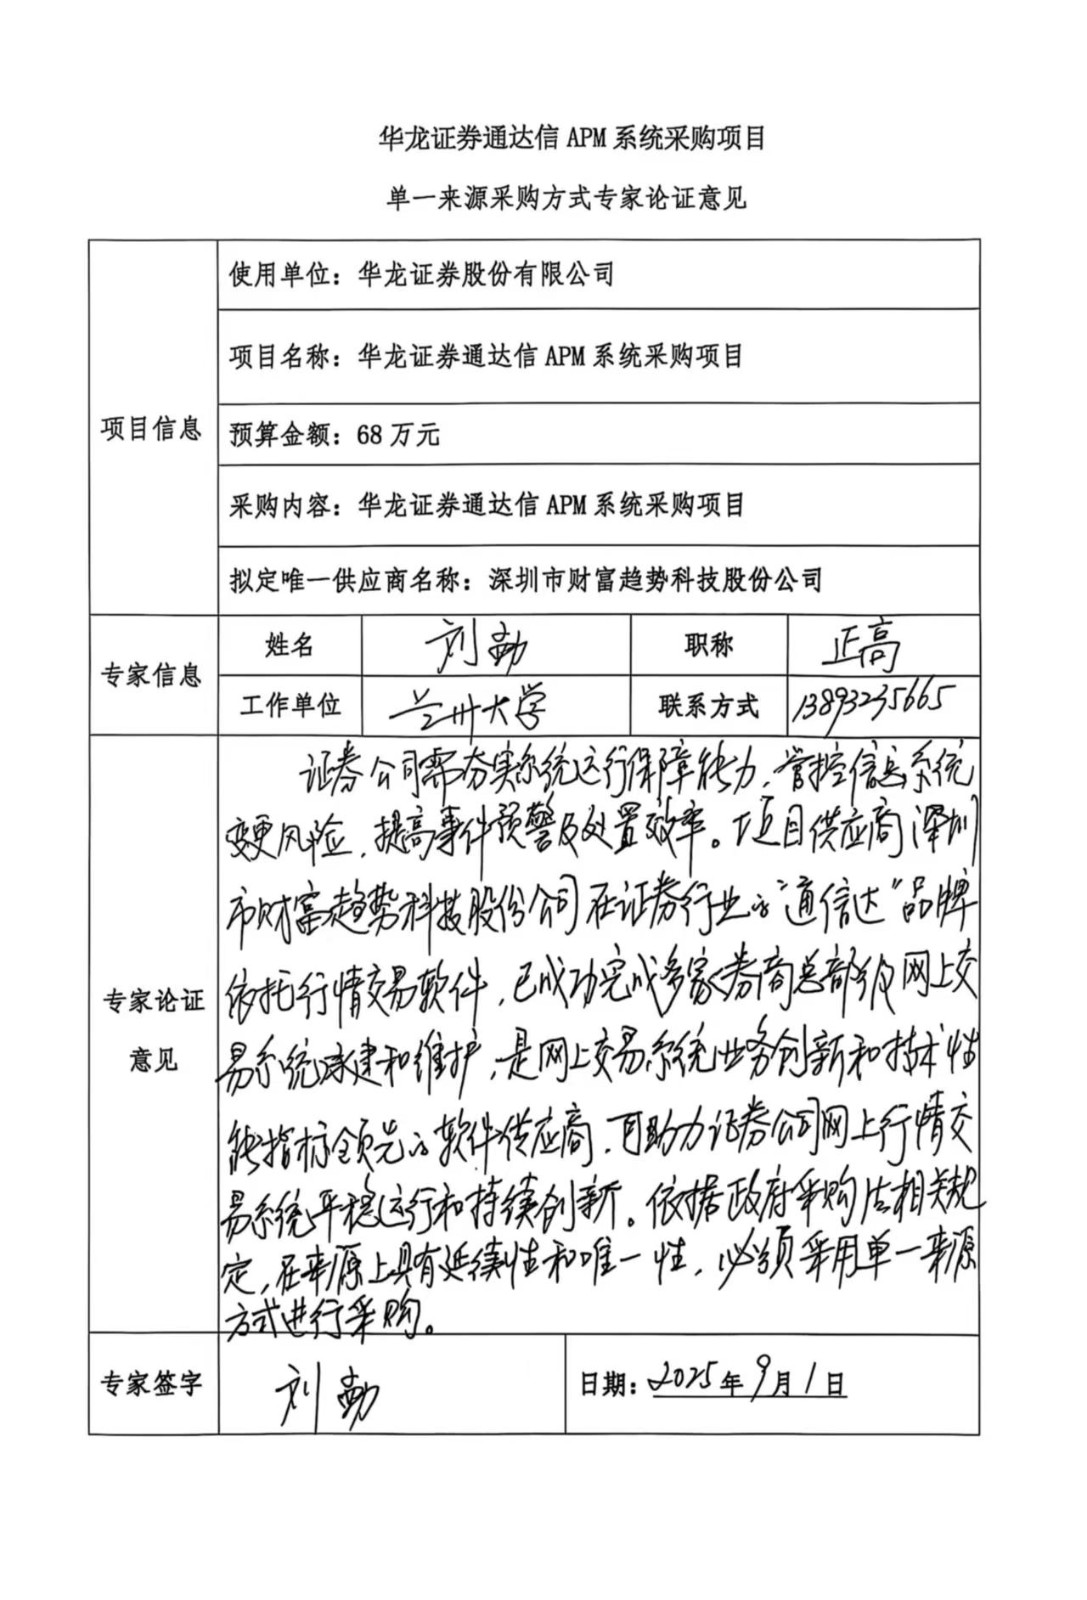 华龙证券通达信 APM 系统采购项目
单一来源采购方式专家论证意见
项目信息
使用单位：华龙证券股份有限公司
项目名称：华龙证券通达信 APM 系统采购项目
预算金额：68 万元
采购内容：华龙证券通达信 APM 系统采购项目
拟定唯一供应商名称：深圳市财富趋势科技股份公司
专家信息
姓名 刘勤 职称 正高
工作单位 兰州大学 联系方式 13893235665
专家论证
意见
证券公司需夯实系统运行保障能力，管控信息系统
变更风险，提高事件预警及处置效率。项目供应商深圳
市财富趋势科技股份公司在证券行业的“通信达”品牌
依托行情交易软件，已成功完成多家券商总部级网上交
易系统承建和维护，是网上交易系统业务创新和技术性
能指标领先的软件供应商，可助力证券公司网上行情交
易系统平稳运行和持续创新。依据政府采购法相关规
定，在来源上具有延续性和唯一性，必须采用单一来源
方式进行采购。
专家签字 刘勤 日期：2025年9月1日